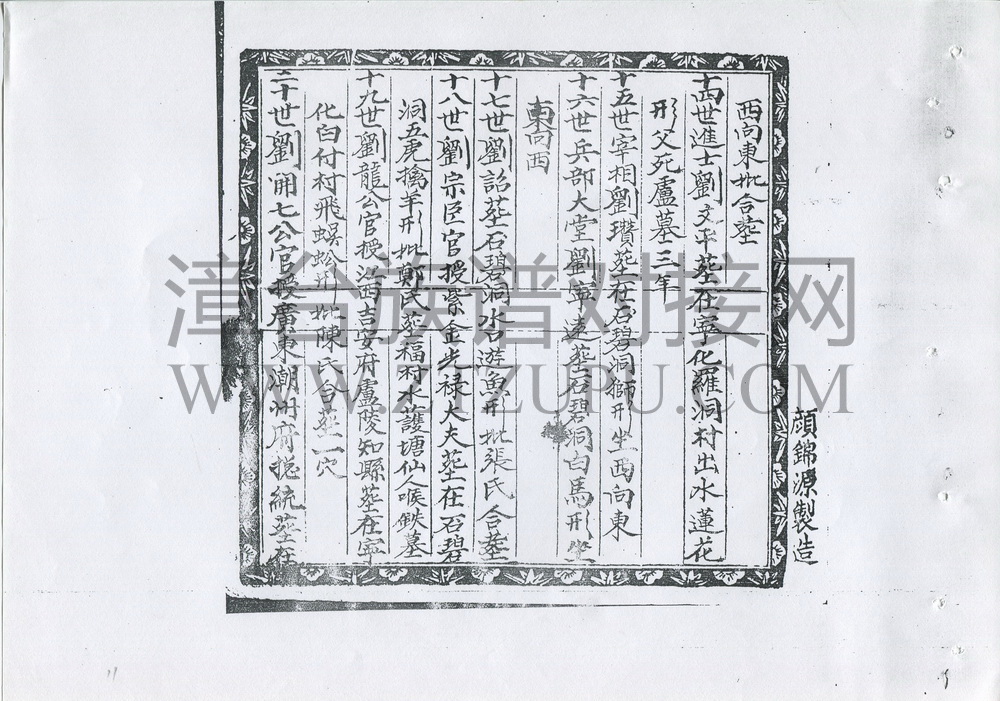 西向東妣合塟
十四世進士劉文平塟在寧化羅洞村出水蓮花
形父死盧墓三年
十五世宰相劉瓚塟在石碧洞獅形坐西向東
十六世兵部大堂劉寧遠塟石碧洞白馬形坐
東向西
十七世劉詔塟石碧洞水遊魚形妣張氏合塟
十八世劉宗臣官授紫金光禄大夫塟在石碧
洞五虎擒羊形妣鄭氏塟福村水護塘仙人喉鉄墓
十九世劉龍公官授江西吉安府盧陵知縣塟在寧
化臼付村飛蜈蚣形妣陳氏合塟一穴
二十世劉開七公官授廣東潮州府揔統塟在
顔錦源製造
漳台族谱对接网
WWW.ZTZUPU.COM
11